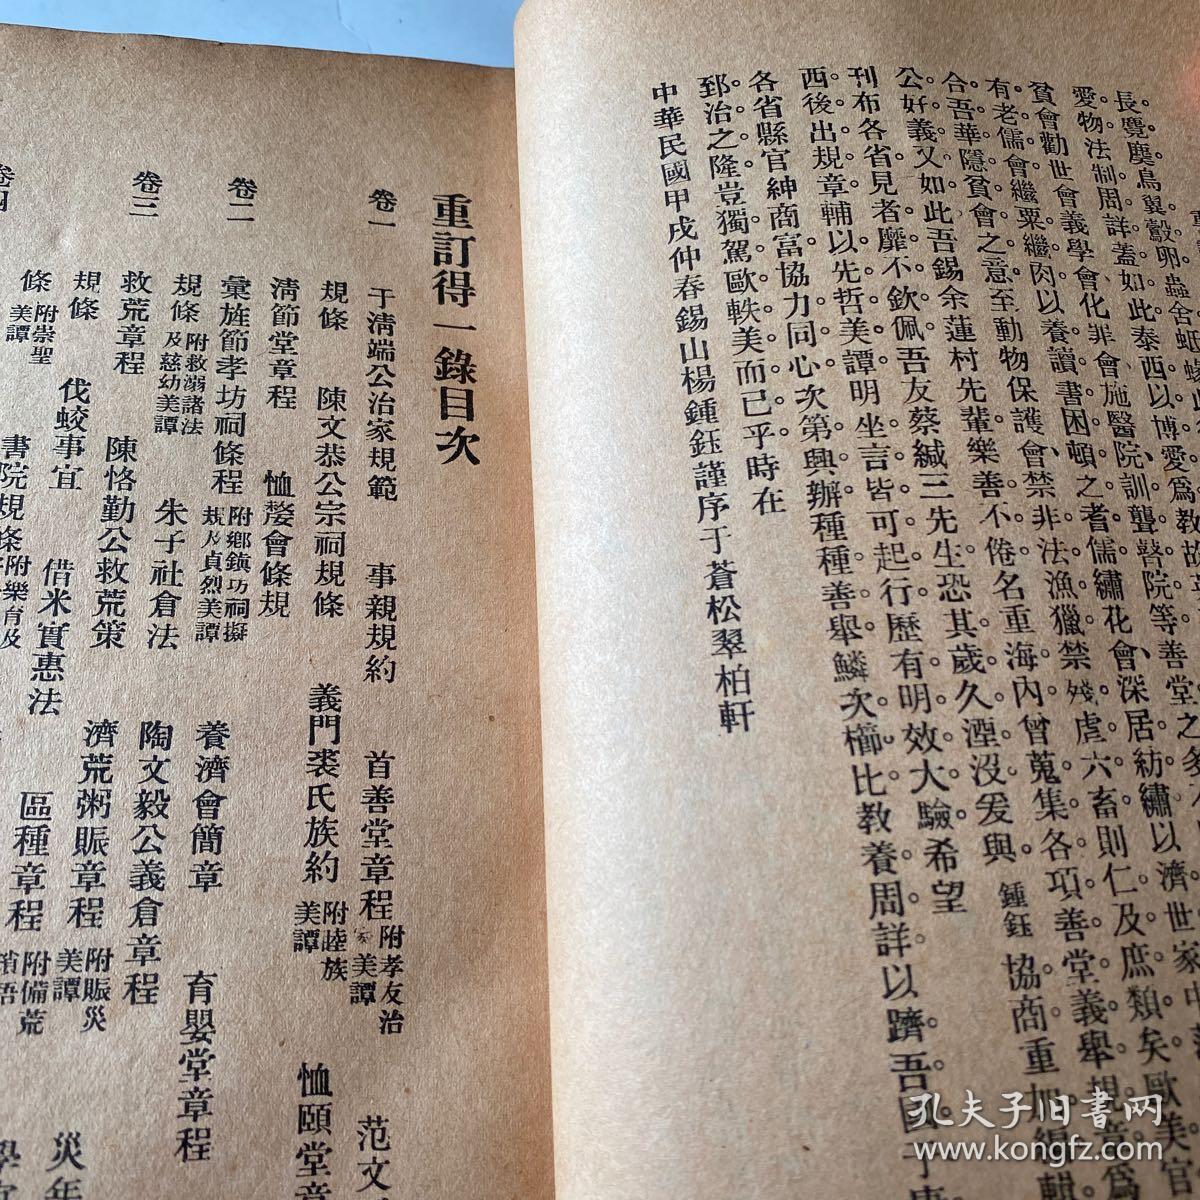 長麛麌鳥翼鷇卵蟲舍蚳蝝
愛物法制周詳蓋如此泰西以博愛爲教故
貧會勸世會義學會化罪會施醫院訓聾瞽院等善堂之多
有老儒會繼粟繼肉以養讀書困頓之者儒繡花會深居紡繡以濟世家中落
合吾華隱貧會之意至動物保護會禁非法漁獵禁殘虐六畜則仁及庶類矣歐美官
公好義又如此吾錫余蓮村先輩樂善不倦名重海內曾蒐集各項善堂義舉規章爲
刊布各省見者靡不欽佩吾友蔡緘三先生恐其歲久湮沒爰與鍾鈺協商重加編輯
西後出規章輔以先哲美譚明坐言皆可起行歷有明效大驗希望
各省縣官紳商富協力同心次第興辦種種善舉鱗次櫛比教養周詳以躋吾國于
郅治之隆豈獨駕歐軼美而已乎時在
中華民國甲戌仲春錫山楊鍾鈺謹序于蒼松翠柏軒
重訂得一錄目次
卷一 于淸端公治家規範 事親規約 首善堂章程 附孝友治家美譚 范文
規條 陳文恭公宗祠規條 義門裘氏族約 附睦族美譚 恤頤堂章
淸節堂章程 恤嫠會條規
卷二 彙旌節孝坊祠條程 附鄉鎭功祠擬規及貞烈美譚 養濟會簡章 育嬰堂章程
規條 附救溺諸法及慈幼美譚 朱子社倉法 陶文毅公義倉章程
卷三 救荒章程 陳恪勤公救荒策 濟荒粥賑章程 附賑災美譚 災年
規條 伐蛟事宜 借米實惠法 區種章程 附備荒
卷四 條 附崇聖美譚 書院規條 附樂育及